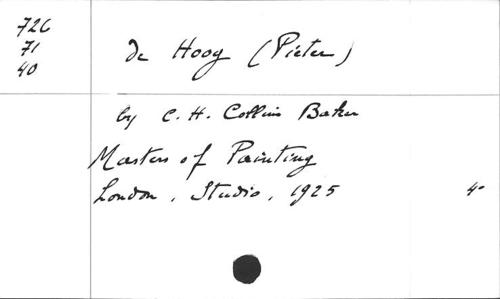 726
71
40
de Hoog (Pieter)
by C. H. Collins Baker
Masters of Painting
London, Studio, 1925
4°